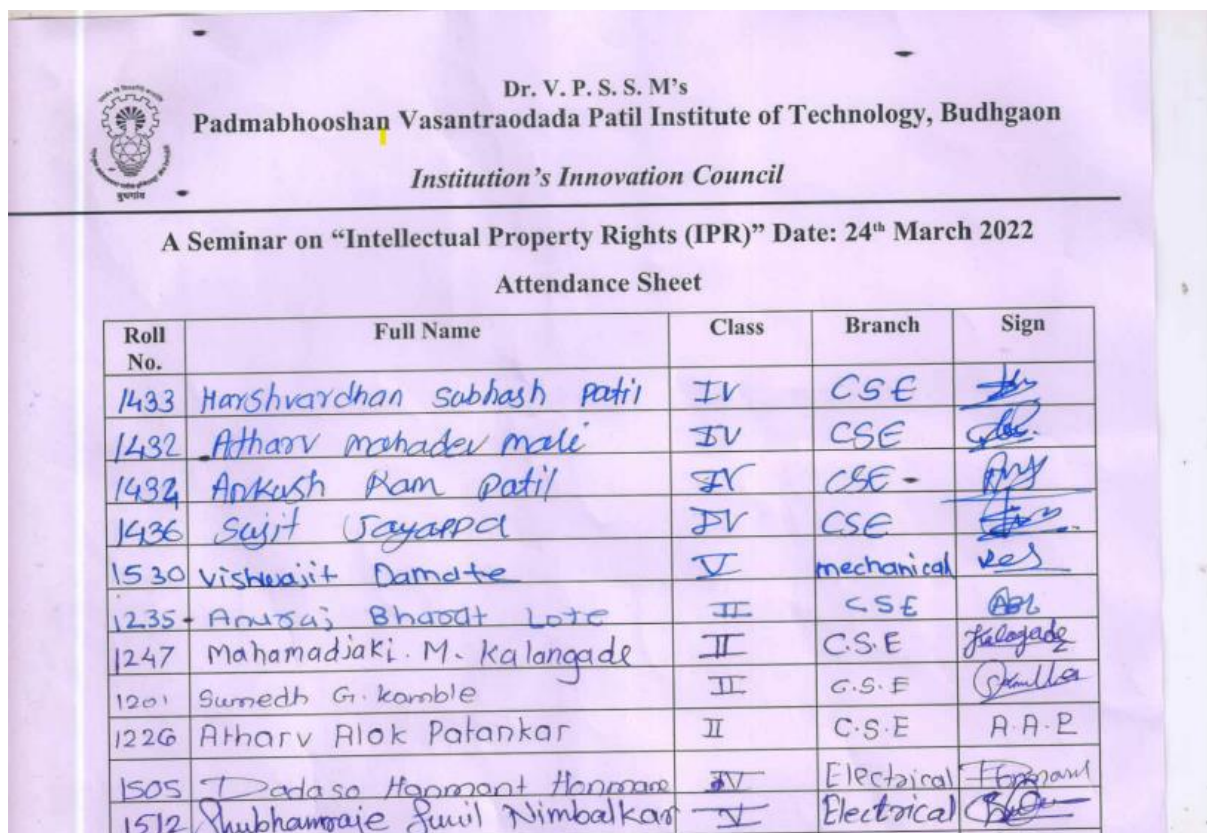 Dr. V. P. S. S. M's
Padmabhooshan Vasantraodada Patil Institute of Technology, Budhgaon
Institution's Innovation Council
बुधगांव
A Seminar on "Intellectual Property Rights (IPR)" Date: 24th March 2022
Attendance Sheet
Roll No. Full Name Class Branch Sign
1433 Harshvardhan Subhash Patil IV CSE
1432 Atharv mahadev mali IV CSE
1434 Ankush Ram Patil IV CSE
1436 Sujit Jayappa IV CSE
1530 Vishwajit Damate V mechanical
1235 Anuraj Bharat Lote II CSE
1247 Mahamadjaki. M. Kalangade II C.S.E Kalagade
1201 Sumedh G. kamble II C.S.E
1226 Atharv Alok Patankar II C.S.E A.A.P
1505 Dadaso Hanmant Honmane IV Electrical
1512 Shubhamraje Sunil Nimbalkar V Electrical